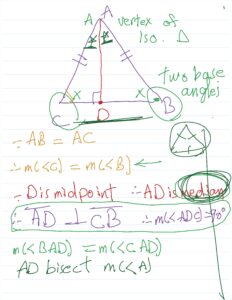 A A vertex of
Iso. Δ
x x
two base
angles
x x
C D B
∵ AB = AC
∴ m(<C) = m(<B)
∵ D is midpoint ∴ AD is median
∵ AD ⊥ CB ∴ m(<ADC)=90°
m(<BAD) = m(<CAD)
AD bisect m(<A)